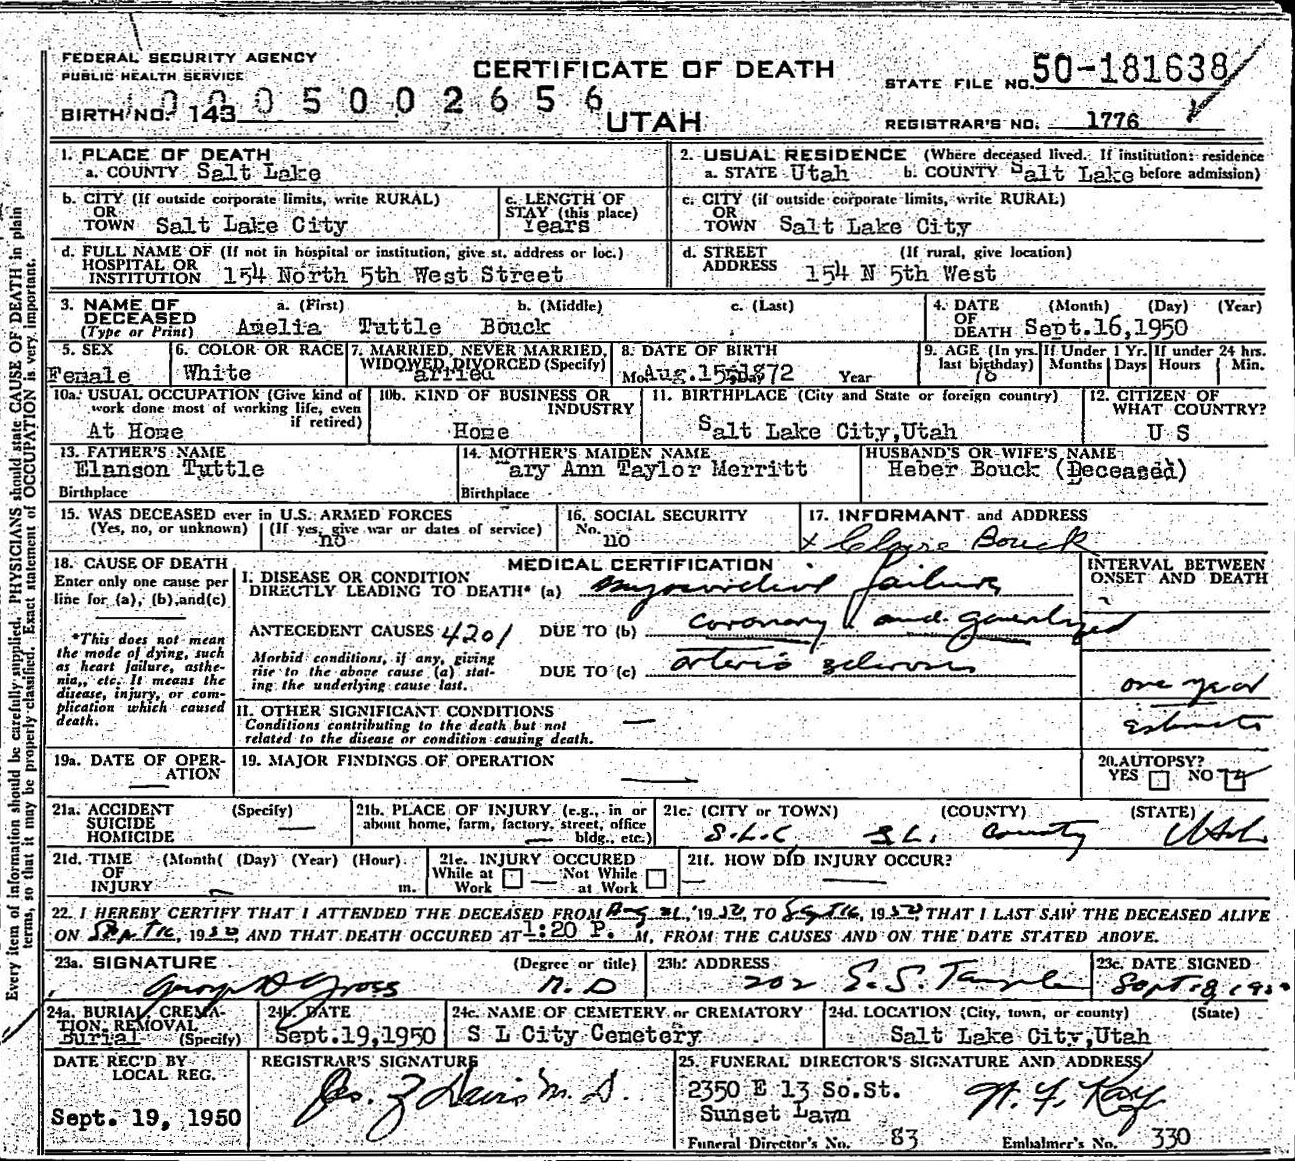 FEDERAL SECURITY AGENCY
PUBLIC HEALTH SERVICE
BIRTH NO. 143
0005002656
CERTIFICATE OF DEATH
UTAH
STATE FILE NO. 50-181638
REGISTRAR'S NO. 1776
Every item of information should be carefully supplied. PHYSICIANS should state CAUSE OF DEATH in plain
terms, so that it may be properly classified. Exact statement of OCCUPATION is very important.
1. PLACE OF DEATH
a. COUNTY Salt Lake
2. USUAL RESIDENCE (Where deceased lived. If institution: residence
a. STATE Utah b. COUNTY Salt Lake before admission)
b. CITY (If outside corporate limits, write RURAL)
OR
TOWN Salt Lake City
c. LENGTH OF
STAY (this place)
Years
c. CITY (if outside corporate limits, write RURAL)
OR
TOWN Salt Lake City
d. FULL NAME OF (If not in hospital or institution, give st. address or loc.)
HOSPITAL OR
INSTITUTION 154 North 5th West Street
d. STREET (If rural, give location)
ADDRESS 154 N 5th West
3. NAME OF a. (First) b. (Middle) c. (Last)
DECEASED
(Type or Print) Amelia Tuttle Bouck
4. DATE (Month) (Day) (Year)
OF
DEATH Sept.16,1950
5. SEX
Female
6. COLOR OR RACE
White
7. MARRIED, NEVER MARRIED,
WIDOWED DIVORCED (Specify)
arried
8. DATE OF BIRTH
Mo. Aug.15 Day 1872 Year
9. AGE (In yrs.
last birthday)
78
If Under 1 Yr.
Months Days
If under 24 hrs.
Hours Min.
10a. USUAL OCCUPATION (Give kind of
work done most of working life, even
if retired)
At Home
10b. KIND OF BUSINESS OR
INDUSTRY
Home
11. BIRTHPLACE (City and State or foreign country)
Salt Lake City,Utah
12. CITIZEN OF
WHAT COUNTRY?
U S
13. FATHER'S NAME
Elanson Tuttle
Birthplace
14. MOTHER'S MAIDEN NAME
ary Ann Taylor Merritt
Birthplace
HUSBAND'S OR WIFE'S NAME
Heber Bouck (Deceased)
15. WAS DECEASED ever in U.S. ARMED FORCES
(Yes, no, or unknown) (If yes, give war or dates of service)
no
16. SOCIAL SECURITY
No.
no
17. INFORMANT and ADDRESS
x Bouck
18. CAUSE OF DEATH
Enter only one cause per
line for (a), (b), and(c)
*This does not mean
the mode of dying, such
as heart failure, asthe-
nia,, etc. It means the
disease, injury, or com-
plication which caused
death.
MEDICAL CERTIFICATION
I. DISEASE OR CONDITION
DIRECTLY LEADING TO DEATH* (a) myocardial failure
ANTECEDENT CAUSES 4201 DUE TO (b) coronary and generalized
Morbid conditions, if any, giving
rise to the above cause (a) stat-
ing the underlying cause last.
DUE TO (c) arterio sclerosis
II. OTHER SIGNIFICANT CONDITIONS
Conditions contributing to the death but not
related to the disease or condition causing death. —
INTERVAL BETWEEN
ONSET AND DEATH
one year
estimate
19a. DATE OF OPER-
ATION
—
19. MAJOR FINDINGS OF OPERATION
—
20. AUTOPSY?
YES ☐ NO
21a. ACCIDENT (Specify)
SUICIDE
HOMICIDE —
21b. PLACE OF INJURY (e.g., in or
about home, farm, factory, street, office
bldg., etc.)
—
21c. (CITY or TOWN) (COUNTY) (STATE)
S.L.C. S.L. County Utah
21d. TIME (Month( (Day) (Year) (Hour)
OF
INJURY — m.
21e. INJURY OCCURED
While at ☐ — Not While ☐
Work at Work
21f. HOW DID INJURY OCCUR?
—
22. I HEREBY CERTIFY THAT I ATTENDED THE DECEASED FROM Aug 1950, TO Sept 16, 1950 THAT I LAST SAW THE DECEASED ALIVE
ON Sept 16, 1950, AND THAT DEATH OCCURED AT 1:20 P. M, FROM THE CAUSES AND ON THE DATE STATED ABOVE.
23a. SIGNATURE (Degree or title)
George D Gross M.D
23b. ADDRESS
202 E. S. Temple
23c. DATE SIGNED
Sept 18, 1950
24a. BURIAL, CREMA-
TION, REMOVAL
Burial (Specify)
24b. DATE
Sept.19,1950
24c. NAME OF CEMETERY or CREMATORY
S L City Cemetery
24d. LOCATION (City, town, or county) (State)
Salt Lake City,Utah
DATE REC'D BY
LOCAL REG.
Sept. 19, 1950
REGISTRAR'S SIGNATURE
Jos. Z Davis M. D.
25. FUNERAL DIRECTOR'S SIGNATURE AND ADDRESS
2350 E 13 So.St.
Sunset Lawn
Funeral Director's No. 83 Embalmer's No. 330